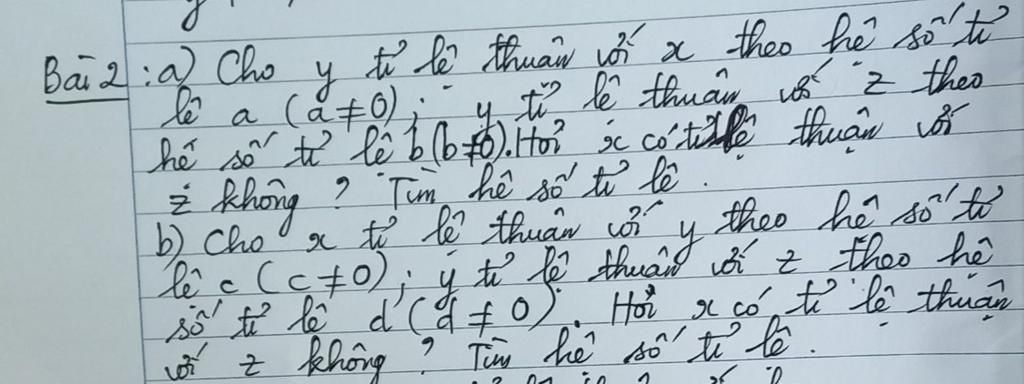 Bài 2 : a) Cho y tỉ lệ thuận với x theo hệ số tỉ
lệ a (a ≠ 0) ; y tỉ lệ thuận với z theo
hệ số tỉ lệ b (b ≠ 0). Hỏi x có tỉ lệ thuận với
z không ? Tìm hệ số tỉ lệ .
b) Cho x tỉ lệ thuận với y theo hệ số tỉ
lệ c (c ≠ 0) ; y tỉ lệ thuận với z theo hệ
số tỉ lệ d (d ≠ 0) . Hỏi x có tỉ lệ thuận
với z không ? Tìm hệ số tỉ lệ .